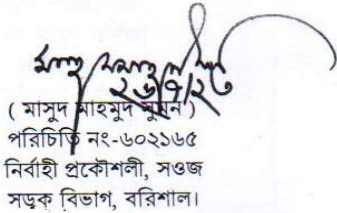 ২৬/৭/২৩
( মাসুদ মাহমুদ সুমন )
পরিচিতি নং-৬০২১৬৫
নির্বাহী প্রকৌশলী, সওজ
সড়ক বিভাগ, বরিশাল।